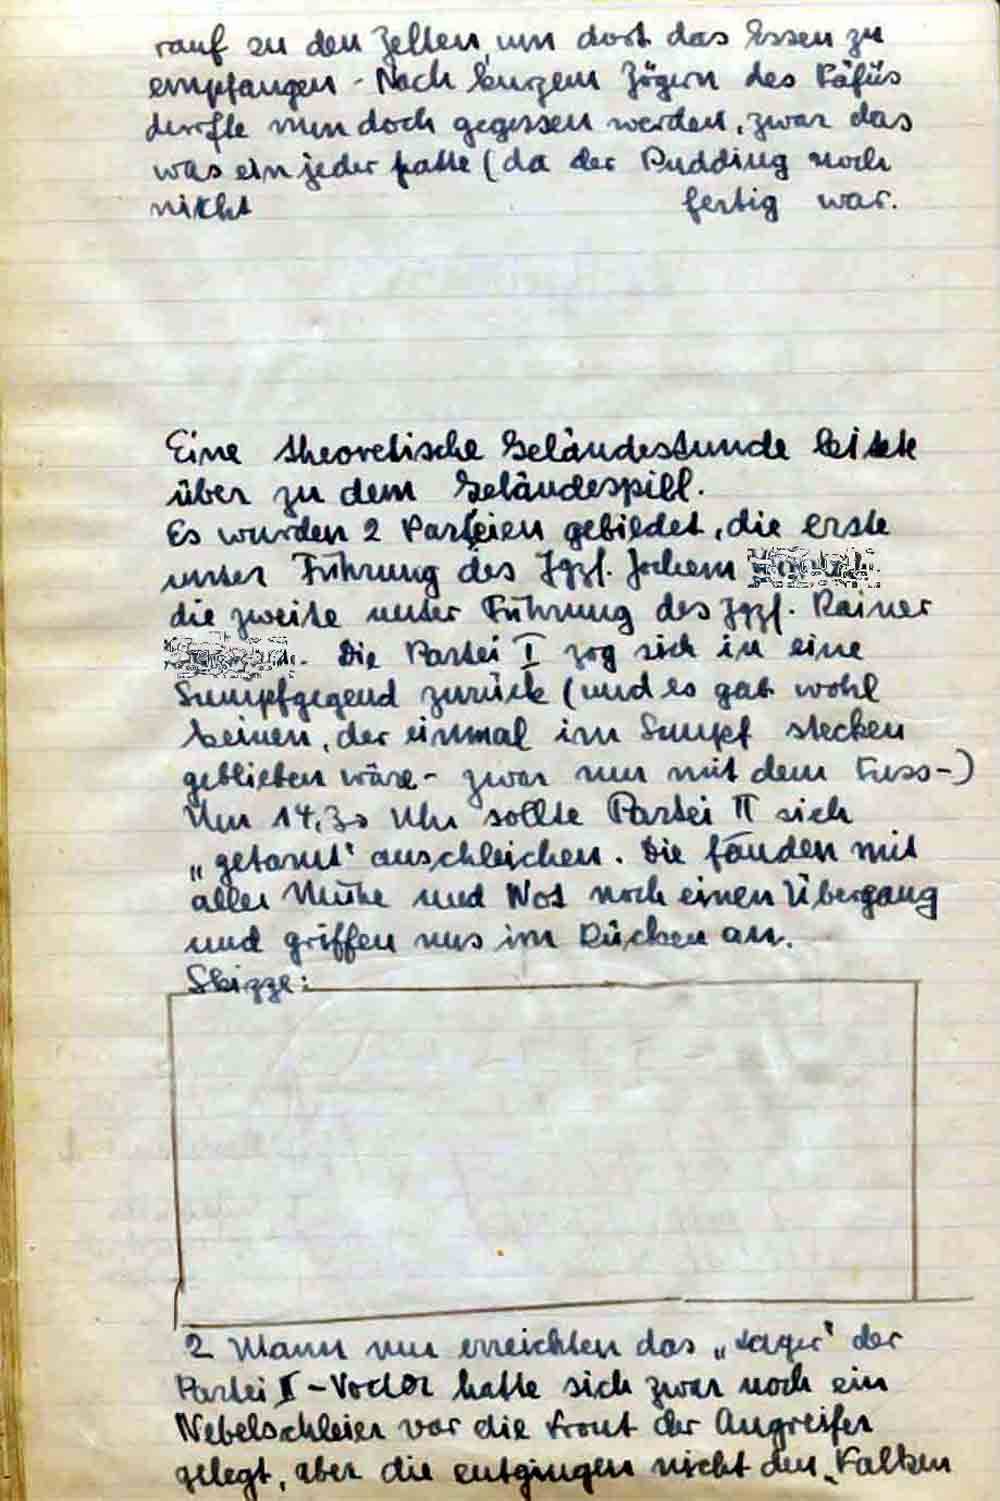 rauf zu den Zelten, um dort das Essen zu
empfangen - Nach kurzem Zögern des Käfüs
durfte nun doch gegessen werden, zwar das
was ein jeder hatte (da der Pudding noch
nikht fertig war.
Eine theoretische Geländestunde leitete
über zu dem Geländespiel.
Es wurden 2 Parteien gebildet, die erste
unter Führung des Jgzf. Jochem
die zweite unter Führung des Jgzf. Rainer
. Die Partei I zog sich in eine
Sumpfgegend zurück (und es gab wohl
keinen, der einmal im Sumpf stecken
geblieben wäre - zwar nur mit dem Fuss-)
Um 14,30 Uhr sollte Partei II sich
„getarnt" anschleichen. Die fanden mit
aller Mühe und Not noch einen Übergang
und griffen uns im Rücken an.
Skizze:
2 Mann nur erreichten das „Lager" der
Partei I - hatte sich zwar noch ein
Nebelschleier vor die Front der Angreifer
gelegt, aber die entgingen nicht den „Falken